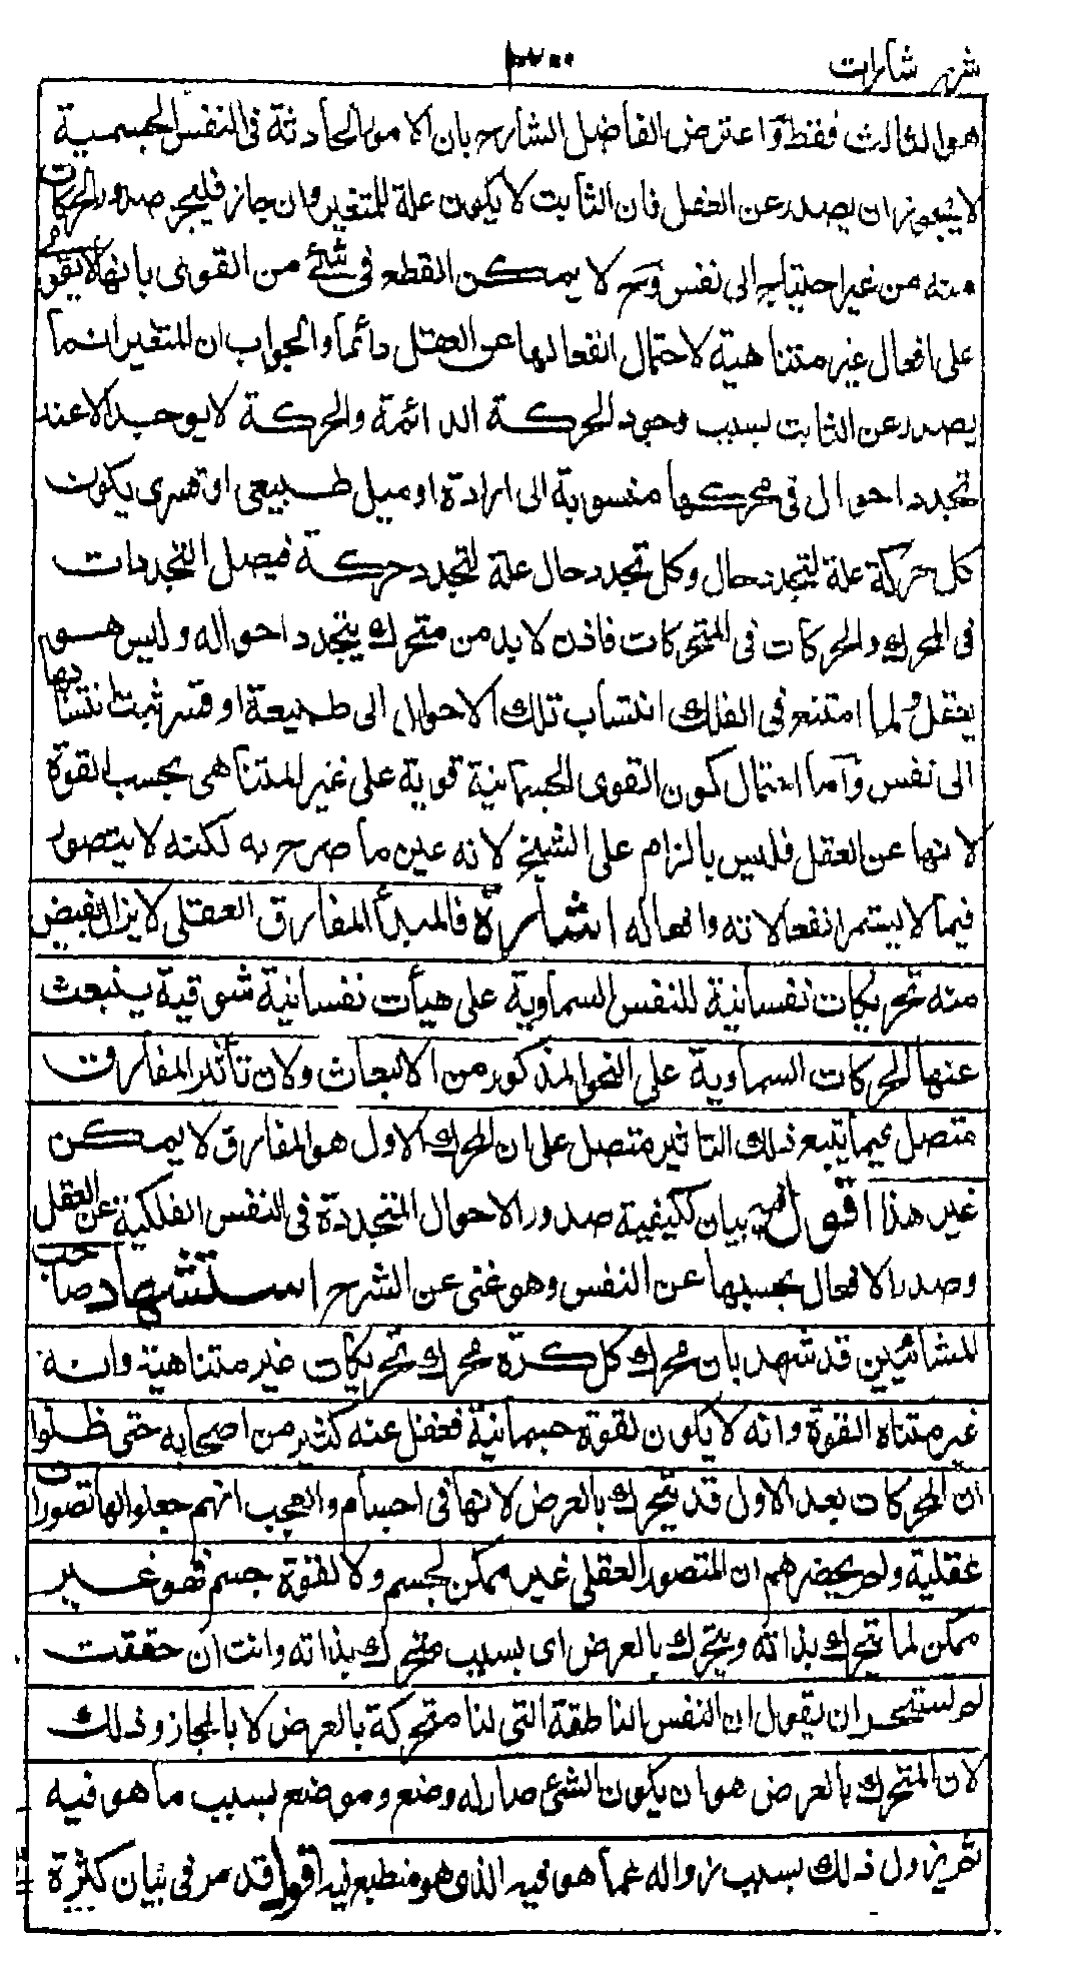 شرح شارات
٣٠٠
هو الثالث فقط وَاعترض الفاضل الشارح بان الامور الحادثة فى النفس الجسمية
لا ينبغى ان يصدر عن العقل فان الثابت لا يكون علة للمتغير وان جاز فليجز صدور الحركات
منه من غير احتياج الى نفس وَح لا يمكن القطع فى شئ من القوى بانها لا يقوى
على افعال غير متناهية لاحتمال انفعالها عن العقل دائما والجواب ان المتغير انما
يصدر عن الثابت بسبب وجود الحركة الدائمة والحركة لا يوجد الا عند
تجدد احوال فى محركها منسوبة الى ارادة او ميل طبيعى او قسرى يكون
كل حركة علة لتجدد حال وكل تجدد حال علة لتجدد حركة فيصل التجددات
فى المحرك والحركات فى المتحركات فاذن لا بد من متحرك يتجدد احواله وليس هو
بعقل ولما امتنع فى الفلك انتساب تلك الاحوال الى طبيعة او قسر ثبت انتسابها
الى نفس وَاما احتمال كون القوى الجسمانية قوية على غير المتناهى بحسب القوة
لانها عن العقل فليس بالزام على الشيخ لانه عين ما صرح به لكنه لا يتصور
فيما لا يستمر انفعالاته وافعاله اشارة فالمبدأ المفارق العقلى لا يزال يفيض
منه تحريكات نفسانية للنفس السماوية على هيأت نفسانية شوقية ينبعث
عنها الحركات السماوية على النحو المذكور من الانبعاث ولان تأثير المفارق
متصل فما يتبع ذلك التاثير متصل على ان المحرك الاول هو المفارق لا يمكن
غير هذا اقول فيه بيان كيفية صدور الاحوال المتجددة فى النفس الفلكية عن العقل
وصدور الافعال بحسبها عن النفس وهو غنى عن الشرح استشهاد صاحب
المشائيين قد شهد بان محرك كل كرة محرك تحريكات غير متناهية وانه
غير متناه القوة وانه لا يكون لقوة جسمانية فغفل عنه كثير من اصحابه حتى ظنوا
ان المحركات بعد الاول قد يتحرك بالعرض لانها فى اجسام والعجب انهم جعلوا لها تصورات
عقلية ولم يحضرهم ان المتصور العقلى غير ممكن لجسم ولا لقوة جسم فهو غير
ممكن لما يتحرك بذاته ويتحرك بالعرض اى بسبب متحرك بذاته وانت ان حققت
لم تستجز ان يقول ان النفس الناطقة التى لنا متحركة بالعرض لا بالمجاز وذلك
لان المتحرك بالعرض هو ان يكون الشئ صار له وضع وموضع بسبب ما هو فيه
ثم يزول ذلك بسبب زواله عما هو فيه الذى هو منطبع فيه اقول قد مر فى بيان كثرة